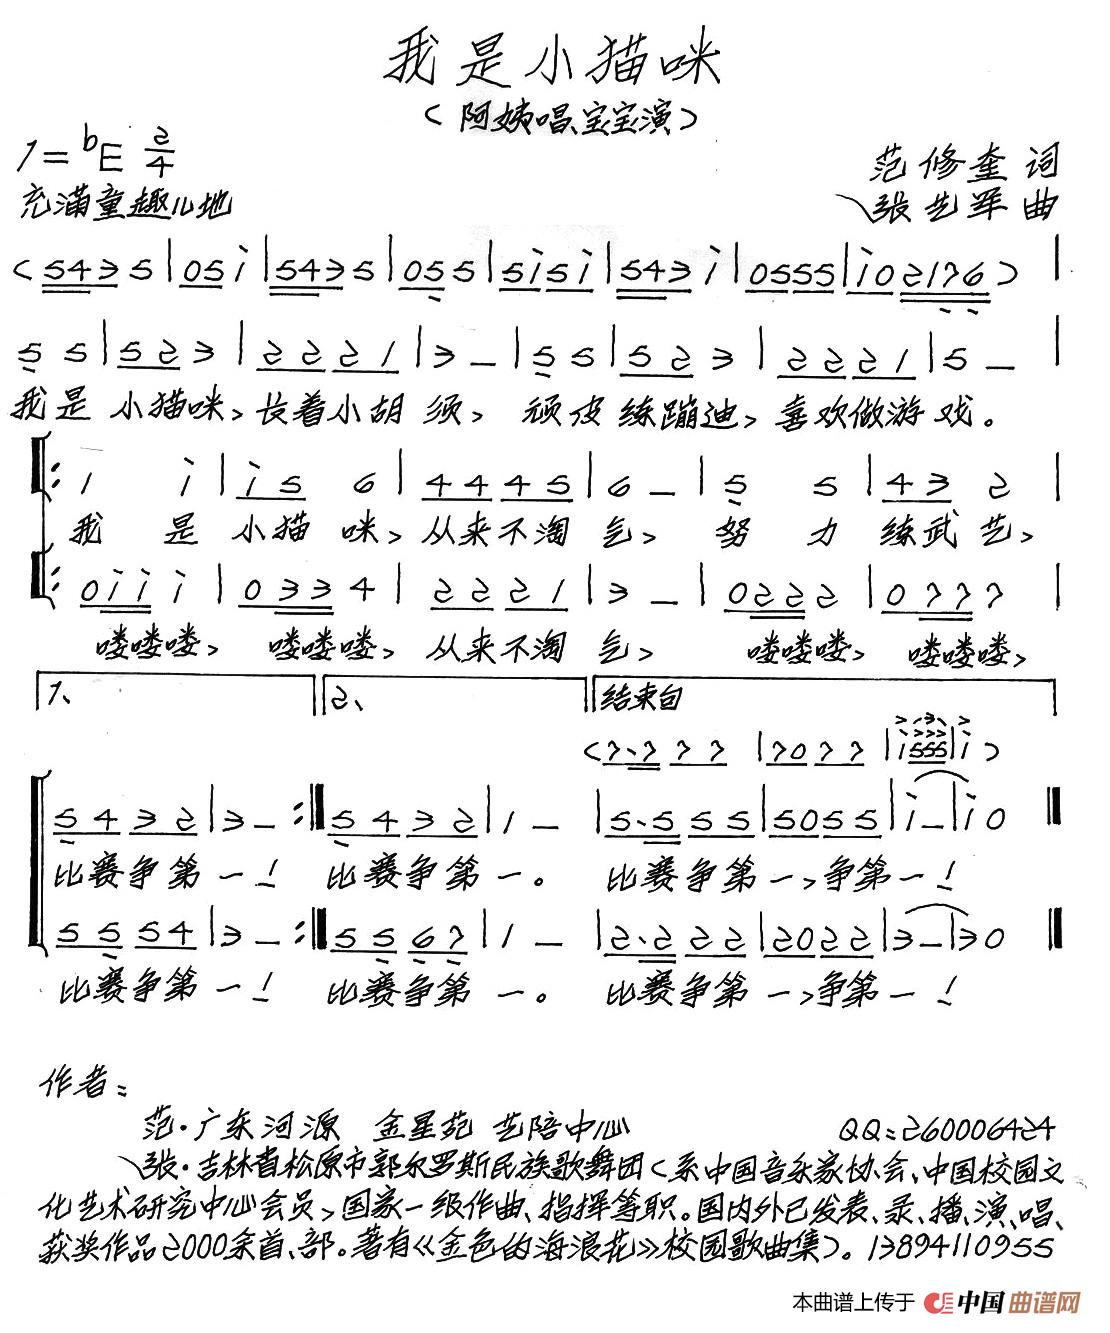 我是小猫咪
(阿姨唱、宝宝演)
1=bE 2/4
范修奎 词
充满童趣儿地
张艺军 曲
(5435|05i|5435|055|5i5i|543i|0555|i02176)|
55|523|2221|3–|55|523|2221|5–|
我是小猫咪,长着小胡须,顽皮练蹦迪,喜欢做游戏。
1 i|i5 6|4445|6–|5 5|43 2|
我是小猫咪,从来不淘气,努力练武艺,
0iii|0334|2221|3–|0222|0777|
喽喽喽,喽喽喽,从来不淘气,喽喽喽,喽喽喽,
1、 2、 结束句
(7·777|7077|i555|i)
5432|3–:‖5432|1–|5·555|5055|i–|i0‖
比赛争第一!比赛争第一。比赛争第一,争第一!
5554|3–:‖5567|1–|2·222|2022|3–|30‖
比赛争第一!比赛争第一。比赛争第一,争第一!
作者:
范·广东河源 金星苑 艺陪中心 QQ:260006424
张·吉林省松原市郭尔罗斯民族歌舞团(系中国音乐家协会、中国校园文
化艺术研究中心会员,国家一级作曲、指挥等职。国内外已发表、录、播、演、唱、
获奖作品2000余首、部。著有《金色的海浪花》校园歌曲集)。13894110955
本曲谱上传于 中国曲谱网